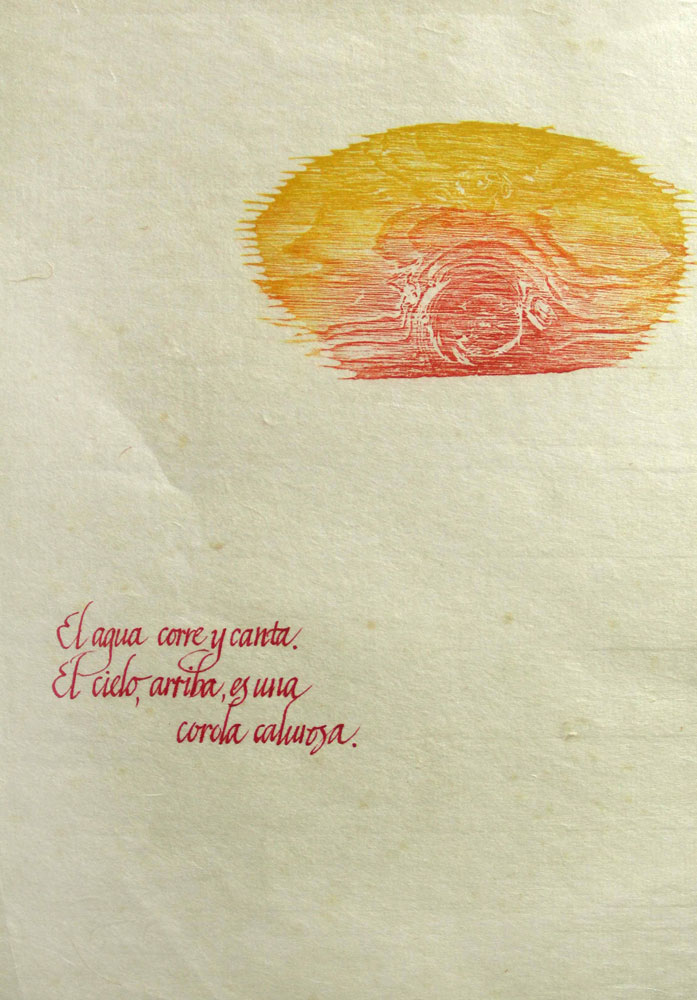 El agua corre y canta.
El cielo, arriba, es una
corola calurosa.